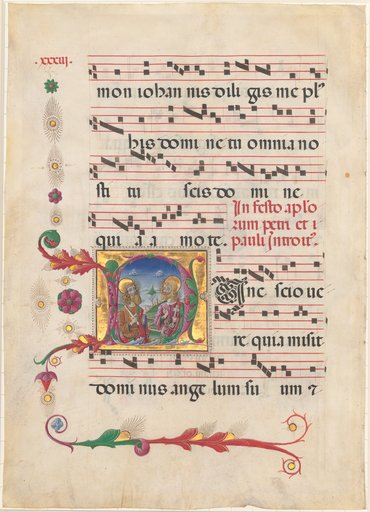 ·xxxiij·
mon iohan nis dili gis me pl⁹
his domi ne tu omnia no
sti tu scis do mi ne
In festo aplo
rum petri et
qui a a mo te.
pauli Introit⁹.
N unc scio ue
re quia misit
domi nus ange lum su um ⁊